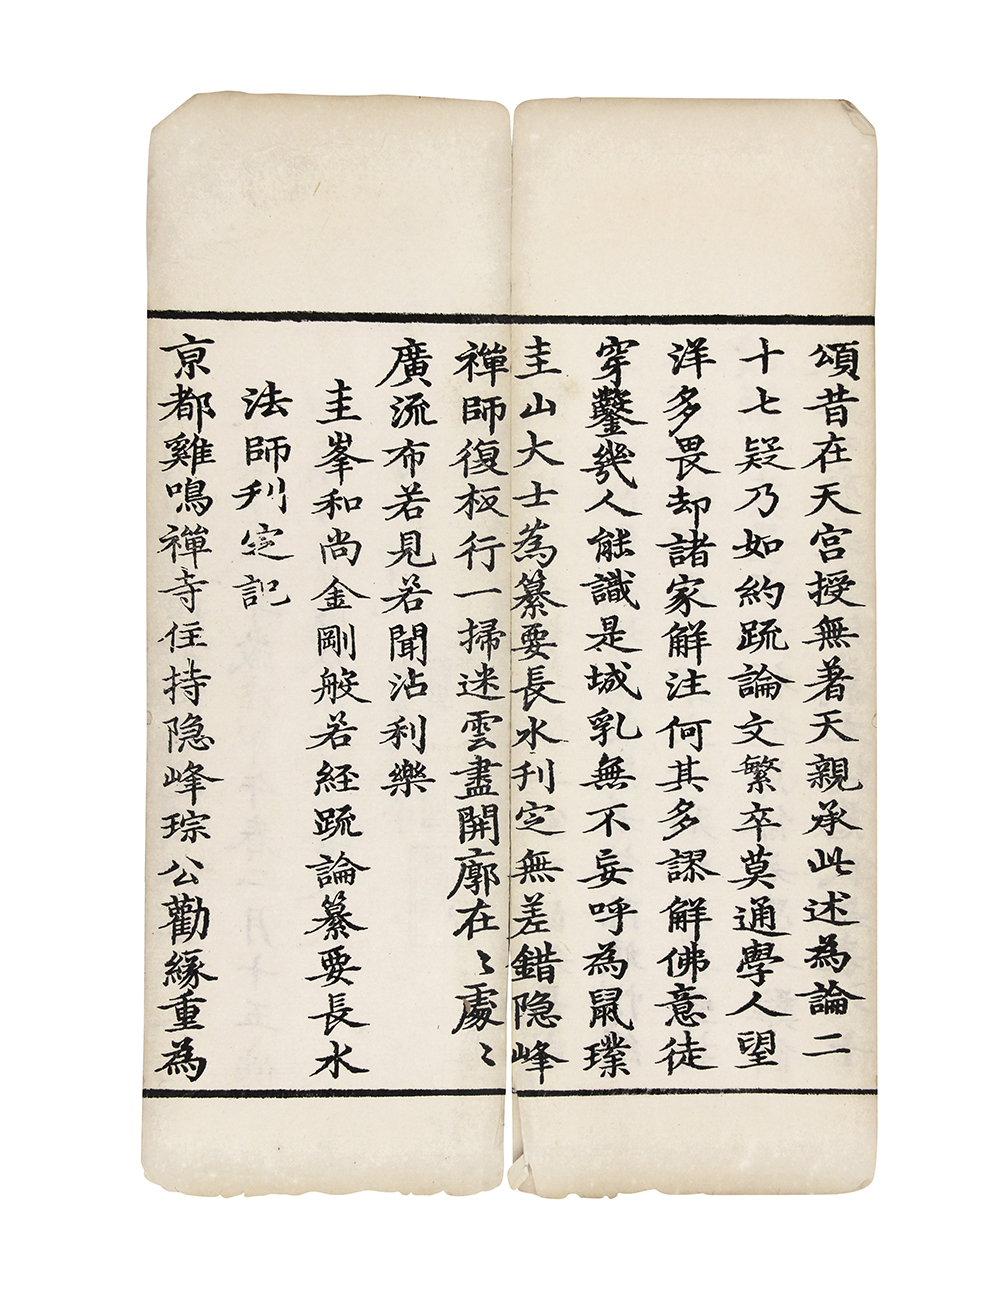 頌昔在天宮授無著天親承此述為論二
十七疑乃如約䟽論文繁卒莫通學人望
洋多畏却諸家解注何其多謬解佛意徒
穿鑿幾人能識是城乳無不妄呼為鼠璞
圭山大士為纂要長水刋定無差錯隐峰
禪師復板行一掃迷雲盡開廓在〻處〻
廣流布若見若聞沾利樂
圭峯和尚金剛般若經䟽論纂要長水
法師刋定記
京都雞鳴禪寺住持隐峰琮公勸緣重為